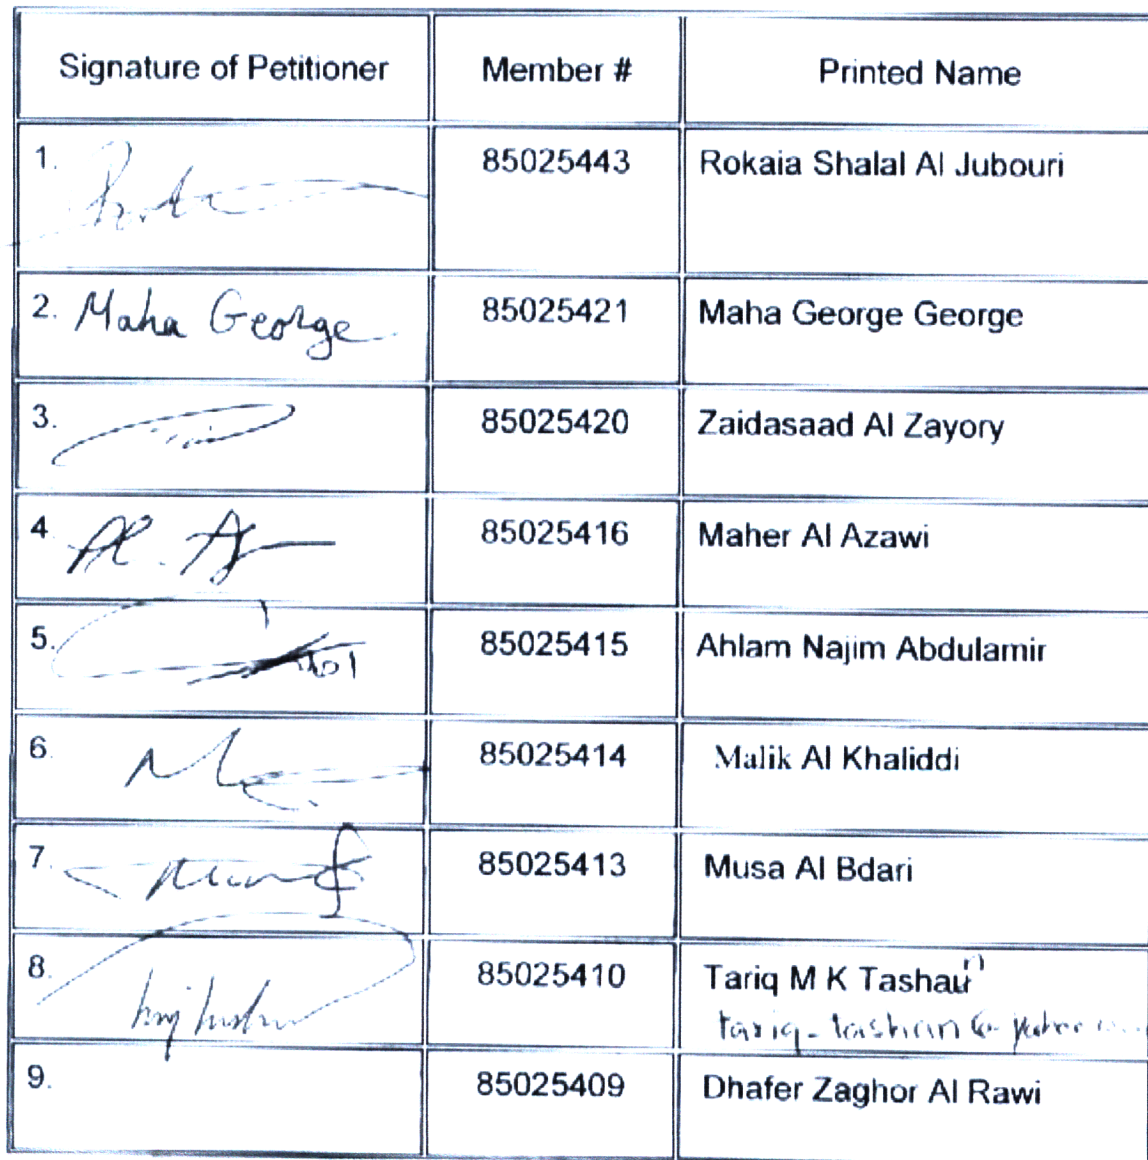 Signature of Petitioner Member # Printed Name
1. 85025443 Rokaia Shalal Al Jubouri
2. Maha George 85025421 Maha George George
3. 85025420 Zaidasaad Al Zayory
4 85025416 Maher Al Azawi
5. 85025415 Ahlam Najim Abdulamir
6. 85025414 Malik Al Khaliddi
7. 85025413 Musa Al Bdari
8. 85025410 Tariq M K Tashau
9. 85025409 Dhafer Zaghor Al Rawi